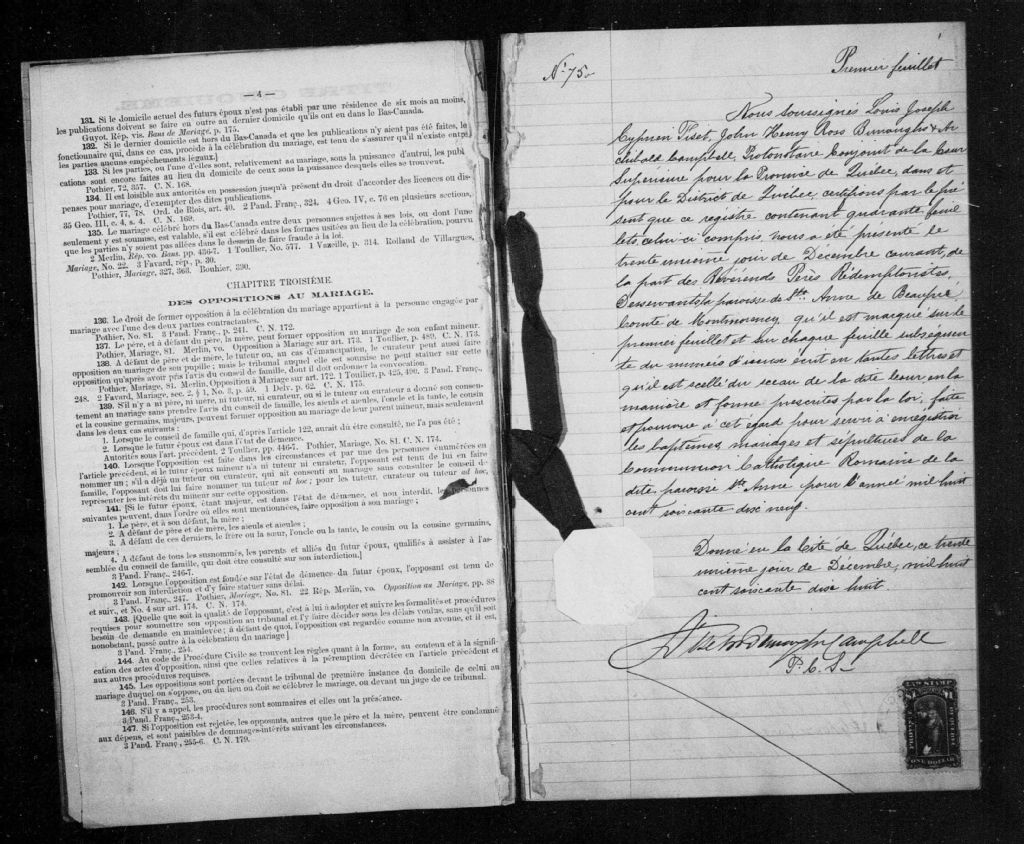 — 4 —
131. Si le domicile actuel des futurs époux n'est pas établi par une résidence de six mois au moins,
les publications doivent se faire en outre au dernier domicile qu'ils ont eu dans le Bas-Canada.
Guyot, Rép. vis. Bans de Mariage, p. 175.
132. Si le dernier domicile est hors du Bas-Canada et que les publications n'y aient pas été faites, le
fonctionnaire qui, dans ce cas, procède à la célébration du mariage, est tenu de s'assurer qu'il n'existe entre
les parties aucuns empêchements légaux.]
133. Si les parties, ou l'une d'elles sont, relativement au mariage, sous la puissance d'autrui, les publi
cations sont encore faites au lieu du domicile de ceux sous la puissance desquels elles se trouvent.
Pothier, 72, 357. C. N. 168.
134. Il est loisible aux autorités en possession jusqu'à présent du droit d'accorder des licences ou dis-
penses pour mariage, d'exempter des dites publications.
Pothier, 77, 78. Ord. de Blois, art. 40. 2 Pand. Franç., 324. 4 Geo. IV, c. 76 en plusieurs sections,
35 Geo. III, c. 4, s. 4. C. N. 169.
135. Le mariage célébré hors du Bas-Canada entre deux personnes sujettes à ses lois, ou dont l'une
seulement y est soumise, est valable, s'il est célébré dans les formes usitées au lieu de la célébration, pourvu
que les parties n'y soient pas allées dans le dessein de faire fraude à la loi.
2 Merlin, Rép. vo. Bans, pp. 436-7. 1 Toullier, No. 577. 1 Vazeille, p. 314. Rolland de Villargues,
Mariage, No. 22. 3 Favard, rép., p. 30.
Pothier, Mariage, 327, 363. Bouhier, 390.
CHAPITRE TROISIÈME.
DES OPPOSITIONS AU MARIAGE.
136. Le droit de former opposition à la célébration du mariage appartient à la personne engagée par
mariage avec l'une des deux parties contractantes.
Pothier, No. 81. 3 Pand. Franç., p. 241. C. N. 172.
137. Le père, et à défaut du père, la mère, peut former opposition au mariage de son enfant mineur.
Pothier, Mariage, 81. Merlin, vo. Opposition à Mariage sur art. 173. 1 Toullier, p. 489. C. N. 173.
138. A défaut de père et de mère, le tuteur ou, au cas d'émancipation, le curateur peut aussi faire
opposition au mariage de son pupille; mais le tribunal auquel elle est soumise ne peut statuer sur cette
opposition qu'après avoir pris l'avis du conseil de famille, dont il doit ordonner la convocation.
Pothier, Mariage, 81. Merlin, Opposition à Mariage sur art. 172. 1 Toullier, p. 425, 490. 3 Pand. Franç.,
248. 2 Favard, Mariage, sec. 2, § 1, No. 3, p. 59. 1 Delv. p. 62. C. N. 175.
139. S'il n'y a ni père, ni mère, ni tuteur, ni curateur, ou si le tuteur ou curateur a donné son consen-
tement au mariage sans prendre l'avis du conseil de famille, les aïeuls et aïeules, l'oncle et la tante, le cousin
et la cousine germains, majeurs, peuvent former opposition au mariage de leur parent mineur, mais seulement
dans les deux cas suivants:
1. Lorsque le conseil de famille qui, d'après l'article 122, aurait dû être consulté, ne l'a pas été;
2. Lorsque le futur époux est dans l'état de démence.
Autorités sous l'art. précédent. 2 Toullier, pp. 446-7. Pothier, Mariage, No. 81. C. N. 174.
140. Lorsque l'opposition est faite dans les circonstances et par une des personnes énumérées en
l'article précédent, si le futur époux mineur n'a ni tuteur ni curateur, l'opposant est tenu de lui en faire
nommer un; s'il a déjà un tuteur ou curateur, qui ait consenti au mariage sans consulter le conseil de
famille, l'opposant doit lui faire nommer un tuteur ad hoc; pour les tuteur, curateur ou tuteur ad hoc,
représenter les intérêts du mineur sur cette opposition.
141. [Si le futur époux, étant majeur, est dans l'état de démence, et non interdit, les personnes
suivantes peuvent, dans l'ordre où elles sont mentionnées, faire opposition à son mariage;
1. Le père, et à son défaut, la mère;
2. A défaut de père et de mère, les aïeuls et aïeules;
3. A défaut de ces derniers, le frère ou la sœur, l'oncle ou la tante, le cousin ou la cousine germains,
majeurs;
4. A défaut de tous les susnommés, les parents et alliés du futur époux, qualifiés à assister à l'as-
semblée du conseil de famille, qui doit être consulté sur son interdiction.]
3 Pand. Franç. 246-7.
142. Lorsque l'opposition est fondée sur l'état de démence du futur époux, l'opposant est tenu de
promouvoir son interdiction et d'y faire statuer sans délai.
3 Pand. Franç., 247. Pothier, Mariage, No. 81. 22 Rép. Merlin, vo. Opposition au Mariage, pp. 88
et suiv., et No. 4 sur art. 174. C. N. 174.
143. [Quelle que soit la qualité de l'opposant, c'est à lui à adopter et suivre les formalités et procédures
requises pour soumettre son opposition au tribunal et l'y faire décider sous les délais voulus, sans qu'il soit
besoin de demande en mainlevée; à défaut de quoi, l'opposition est regardée comme non avenue, et il est,
nonobstant, passé outre à la célébration du mariage]
3 Pand. Franç., 254.
144. Au code de Procédure Civile se trouvent les règles quant à la forme, au contenu et à la signifi-
cation des actes d'opposition, ainsi que celles relatives à la péremption décrétée en l'article précédent et
aux autres procédures requises.
145. Les oppositions sont portées devant le tribunal de première instance du domicile de celui au
mariage duquel on s'oppose, ou du lieu où doit se célébrer le mariage, ou devant un juge de ce tribunal.
3 Pand. Franç., 253.
146. S'il y a appel, les procédures sont sommaires et elles ont la préséance.
3 Pand. Franç., 253-4.
147. Si l'opposition est rejetée, les opposants, autres que le père et la mère, peuvent être condamné
aux dépens, et sont paisibles de dommages-intérêts suivant les circonstances.
3 Pand. Franç., 255-6. C. N. 179.
No 75
Premier feuillet
Nous soussignés Louis Joseph
Cyprien Fiset, John Henry Ross Burroughs & Ar
chibald Campbell, Protonotaire Conjoint de la Cour
Supérieure pour la Province de Québec, dans et
pour le District de Québec, certifions par le pré
sent que ce registre contenant quarante feuil
lets, celui-ci compris, nous a été présenté le
trente unième jour de Décembre courant, de
la part des Révérends Pères Rédemptoristes,
Desservants la paroisse de Ste Anne de Beaupré,
Comté de Montmorency, qu'il est marqué sur le
premier feuillet et sur chaque feuille subséquen
te du numéro d'icelui écrit en toutes lettres et
qu'il est scellé du sceau de la dite Cour en la
manière et forme prescrites par la loi, faite
et pourvue à cet égard pour servir à enregistrer
les baptêmes, mariages et sépultures de la
Communion Catholique Romaine de la
dite paroisse Ste Anne pour l'année mil huit
cent soixante dix neuf.
Donné en la Cité de Québec, ce trente
unième jour de Décembre, mil huit
cent soixante dix huit.
Fiset Burroughs Campbell
P. C. S.
LAW STAMP
ONE DOLLAR